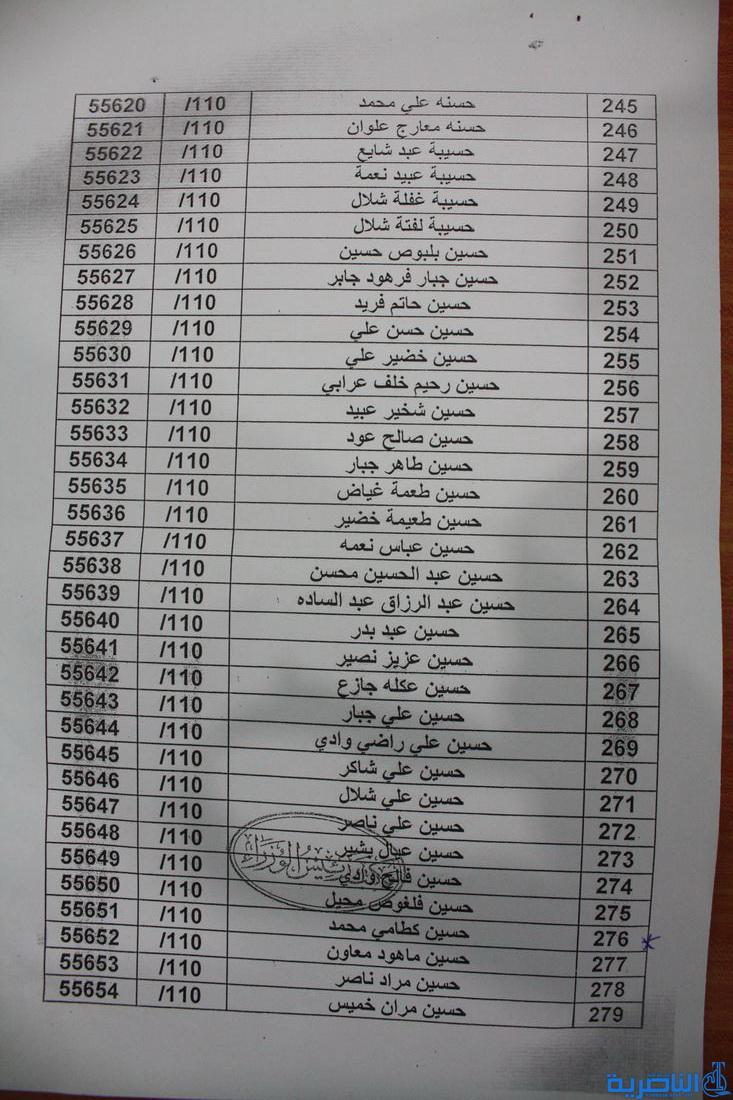 245 حسنه علي محمد 110/ 55620
246 حسنه معارج علوان 110/ 55621
247 حسيبة عبد شايع 110/ 55622
248 حسيبة عبيد نعمة 110/ 55623
249 حسيبة غفلة شلال 110/ 55624
250 حسيبة لفتة شلال 110/ 55625
251 حسين بلبوص حسين 110/ 55626
252 حسين جبار فرهود جابر 110/ 55627
253 حسين حاتم فريد 110/ 55628
254 حسين حسن علي 110/ 55629
255 حسين خضير علي 110/ 55630
256 حسين رحيم خلف عرابي 110/ 55631
257 حسين شخير عبيد 110/ 55632
258 حسين صالح عود 110/ 55633
259 حسين طاهر جبار 110/ 55634
260 حسين طعمة غياض 110/ 55635
261 حسين طعيمة خضير 110/ 55636
262 حسين عباس نعمه 110/ 55637
263 حسين عبد الحسين محسن 110/ 55638
264 حسين عبد الرزاق عبد الساده 110/ 55639
265 حسين عبد بدر 110/ 55640
266 حسين عزيز نصير 110/ 55641
267 حسين عكله جازع 110/ 55642
268 حسين علي جبار 110/ 55643
269 حسين علي راضي وادي 110/ 55644
270 حسين علي شاكر 110/ 55645
271 حسين علي شلال 110/ 55646
272 حسين علي ناصر 110/ 55647
273 حسين عيال بشير 110/ 55648
274 حسين فالح وادي 110/ 55649
275 حسين فلغوص محيل 110/ 55650
276 حسين كطامي محمد 110/ 55651
277 حسين ماهود معاون 110/ 55652
278 حسين مراد ناصر 110/ 55653
279 حسين مران خميس 110/ 55654
رئيس الوزراء
الناصرية